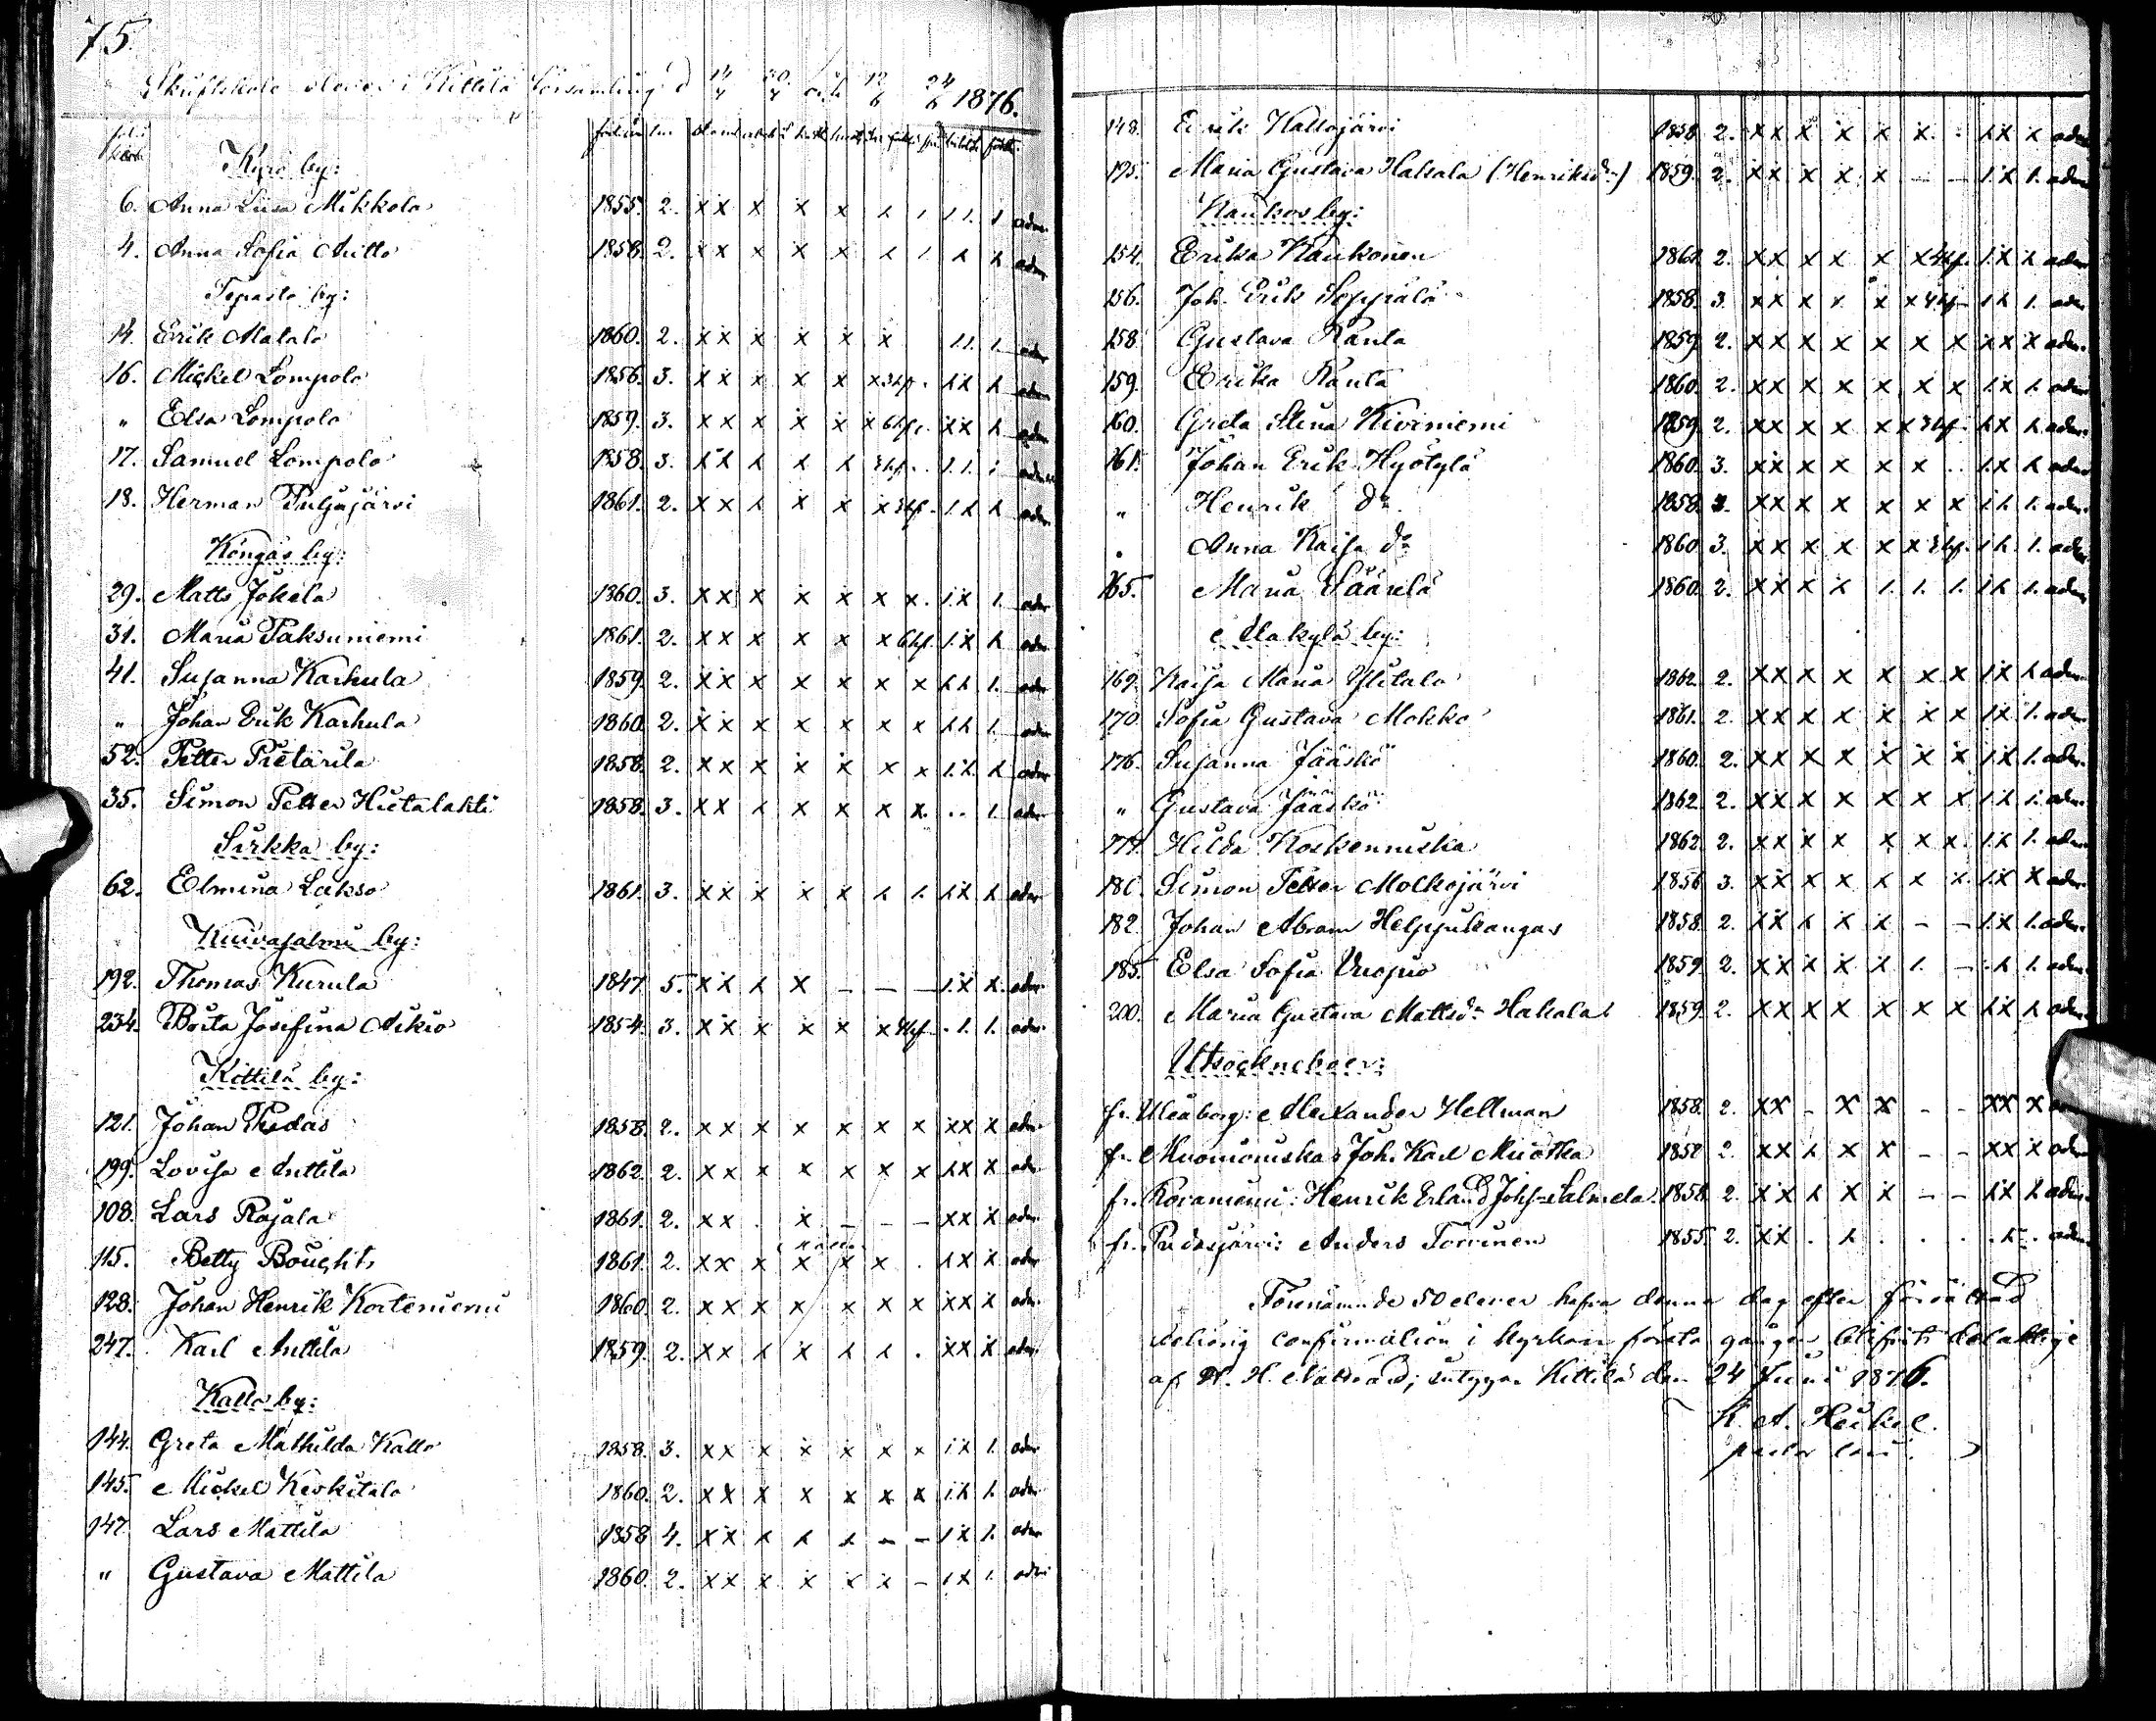 75.
Skriftskole elever i Kittilä församling d 14/4 20/4 och 12/6 24/6 1876.
Kyrö by:
6. Anna Liisa Mikkola 1855. 2. x x x x x adm.
4. Anna Sofia Autto 1858. 2. x x x x x adm
Tepasto by:
14. Erik Alatalo 1860. 2. x x x x x x adm
16. Mickel Lompolo 1856. 3. x x x x x x 3 hf. adm
" Elsa Lompolo 1859. 3. x x x x x x 6 hf. x x adm
17. Samuel Lompolo 1858. 3. x x x x x 3 hf. adm
18. Herman Puljujärvi 1861. 2. x x x x x x 3 hf. adm
Köngäs by:
29. Matts Jokela 1860. 3. x x x x x x x. 1. x 1. adm
31. Maria Paksuniemi 1861. 2. x x x x x x 6 hf. 1. x x adm
41. Susanna Karhula 1859. 2. x x x x x x x x x 1. adm
" Johan Erik Karhula 1860. 2. x x x x x x x x x 1. adm
52. Petter Pietärilä 1858. 2. x x x x x x x 1. x. x adm
35. Simon Petter Hietalahti 1858. 3. x x x x x x x. . . 1. adm
Sirkka by:
62. Elmina Lakso 1861. 3. x x x x x x 1. x x x adm
Kuivasalmi by:
192. Thomas Kurula 1847. 5. x x x x — — — 1. x x. adm
234. Brita Josefina Aikio 1854. 3. x x x x x x 4 hf. . 1. 1. adm
Kittilä by:
121. Johan Pudas 1858. 2. x x x x x x x x x x adm
199. Lovisa Anttila 1862. 2. x x x x x x x x x x adm
108. Lars Rajala 1861. 2. x x . x — — — x x x adm
115. Betty Bought 1861. 2. x x x x x x . x x x adm
128. Johan Henrik Korteniemi 1860. 2. x x x x x x x x x x adm
247. Karl Anttila 1859. 2. x x x x x x . x x x adm
Kallo by:
144. Greta Mathilda Kallo 1858. 3. x x x x x x x 1 x 1. adm
145. Mickel Keskitalo 1860. 2. x x x x x x x 1. x 1. adm
147. Lars Mattila 1858 4. x x x x x — — 1 x 1. adm
" Gustava Mattila 1860. 2. x x x x x x — 1 x 1. adm
148. Erik Kallojärvi 1858. 2. x x x x x x . x x x adm
195. Maria Gustava Hakala (Henriksdr) 1859. 2. x x x x x — — 1. x 1. adm
Kaukos by:
154. Erika Kaukonen 1860. 2. x x x x x x 4 hf. 1. x x adm
156. Joh. Erik Soppiala 1858. 3. x x x x x x 4 hf. 1 x 1. adm
158. Gustava Ranta 1859 2. x x x x x x x x x x adm.
159. Erika Ranta 1860. 2. x x x x x x x 1. x 1. adm
160. Greta Stina Kiviniemi 1859. 2. x x x x x x 3 hf. x x x adm.
161. Johan Erik Hyötylä 1860. 3. x x x x x x . . 1. x x adm
" Henrik do 1858. 3. x x x x x x x 1 x 1. adm.
" Anna Kaisa do 1860 3. x x x x x x 3 hf. 1 x 1. adm
165. Maria Säärelä 1860. 2. x x x x 1. 1. 1. 1 x 1. adm
Alakylä by:
169. Kaisa Maria Ylitalo 1862. 2. x x x x x x x 1 x x adm.
170. Sofia Gustava Mokko 1861. 2. x x x x x x x 1 x 1. adm.
176. Susanna Jääskö 1860. 2. x x x x x x x 1 x 1. adm.
" Gustava Jääskö 1862. 2. x x x x x x x 1. x 1. adm.
177. Hilda Koskenniska 1862. 2. x x x x x x x. 1. x 1. adm.
180. Simon Petter Molkojärvi 1856. 3. x x x x x x x. 1. x x adm.
182. Johan Abram Helppukangas 1858. 2. x x x x x — — 1. x 1. adm.
185. Elsa Sofia Vuopio 1859 2. x x x x x 1. — . x 1. adm.
200. Maria Gustava Mattsdr Hakala 1859. 2. x x x x x x x 1 x x adm.
Utsockneboer:
fr. Uleåborg: Alexander Hellman 1858. 2. x x — x x — — x x x
fr. Muonioniska: Joh. Karl Muotka 1858 2. x x x x x — — x x x adm.
fr. Rovaniemi: Henrik Erland Johss. Salmela. 1858. 2. x x x x x — — x x x adm.
fr. Pudasjärvi: Anders Törrinen 1855. 2. x x . x . . . . x . adm
Förenämnde 50 elever hafva denna dag efter förrättad
behörig confirmation i kyrkan första gången blifvit delaktige
af H. H. Nattvard; intygar Kittilä den 24 Juni 1876.
K. A. Heikel.
pastor loci.